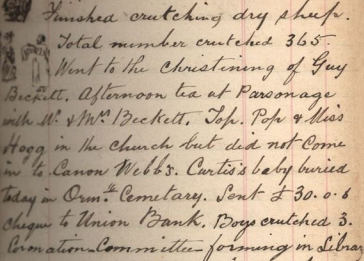 Finished crutching dry sheep.
Total number crutched 365
Went to the christining of Guy
Beckett. Afternoon tea at Parsonage
with Mr. & Mrs Beckett. Top. Pop & Miss
Hogg in the church but did not come
in to Canon Webb's. Curtis's baby buried
today in Orm. Cemetary. Sent £30.0.6
cheque to Union Bank. Boys crutched 3.
Coronation Committee forming in Librar